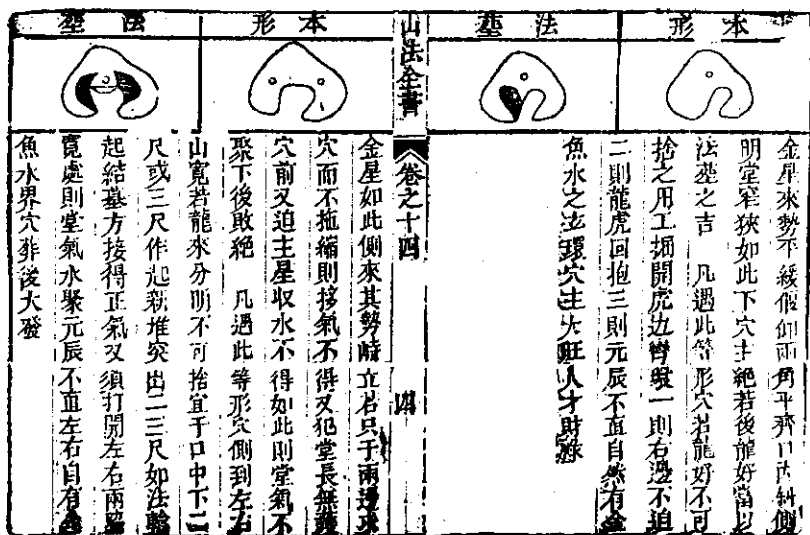 本形
法塟
金星來勢不緩假仰兩角平齊口內斜側
明堂窄狹如此下穴主絕若後龍好當以
法塟之吉 凡遇此等形穴若龍好不可
捨之用工掘開虎边彎環一則右邊不迫
二則龍虎回抱三則元辰不直自然有金
魚水之法環穴主大旺人才財祿
山法全書
卷之十四
四
本形
法塟
金星如此側來其勢峙立若只于兩邊求
穴而不拖縮則接氣不得又犯堂長無護
穴前又迫主星取水不得如此則堂氣不
聚下後敗絕 凡遇此等形穴側到左右
山寬若龍來分明不可捨宜于口中下二
尺或三尺作起新堆突出二三尺如法輪
起結墓方接得正氣又須打開左右兩路
寬處則堂氣水聚元辰不直左右自有金
魚水界穴葬後大發